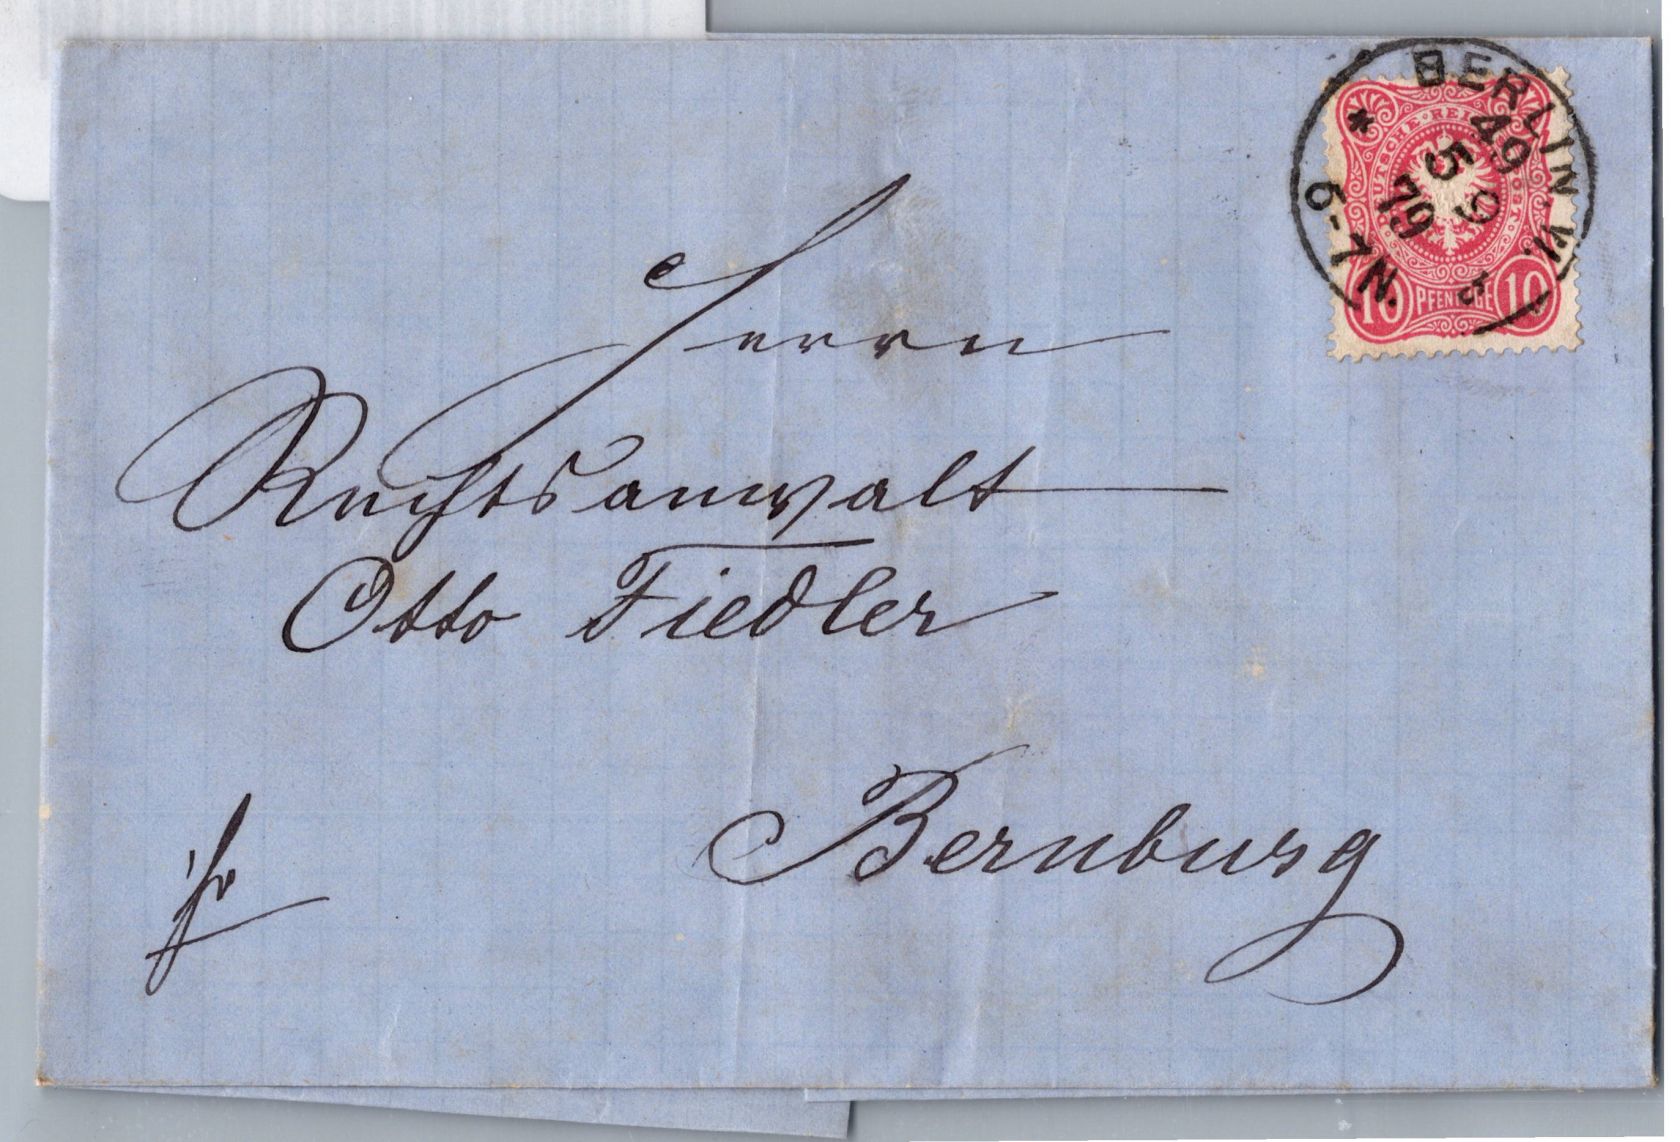 BERLIN.W.
49
5 9
79
6-7N.
DEUTSCHE · REICHS · POST
10 PFENNIGE 10
Herrn
Rechtsanwalt
Otto Fiedler
Bernburg